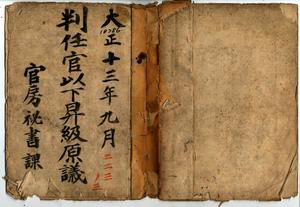 大正十三年九月
10786
判任官以下昇級原議
官房秘書課